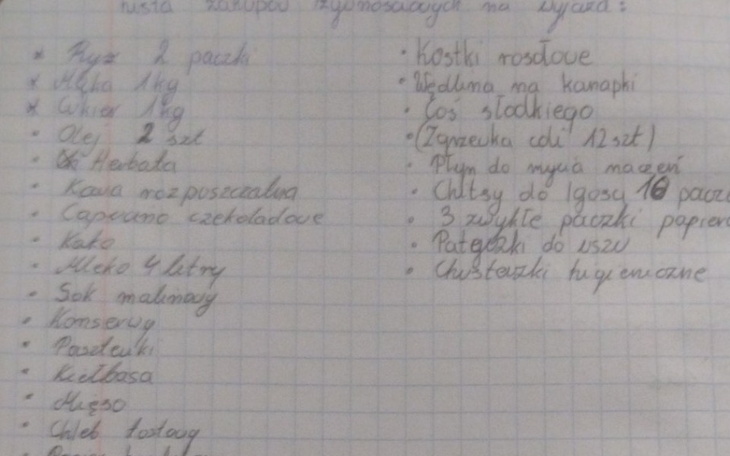 lista zakupów żywnościowych na wyjazd:
* Ryż 2 paczki
* Mąka 1 kg
* Cukier 1 kg
• Olej 2 szt
• Herbata
• Kawa rozpuszczalna
• Capucino czekoladowe
• Kako
• Mleko 4 litry
• Sok malinowy
• Konserwy
• Pasztecki
• Kiełbasa
• Mięso
• Chleb tostowy
• Kostki rosołowe
• Wędlina na kanapki
• Coś słodkiego
• (Zgrzewka coli 12 szt)
• Płyn do mycia naczeń
• do 10
• 3 zwykłe paczki
• Patyczki do uszu
• Chusteczki higieniczne